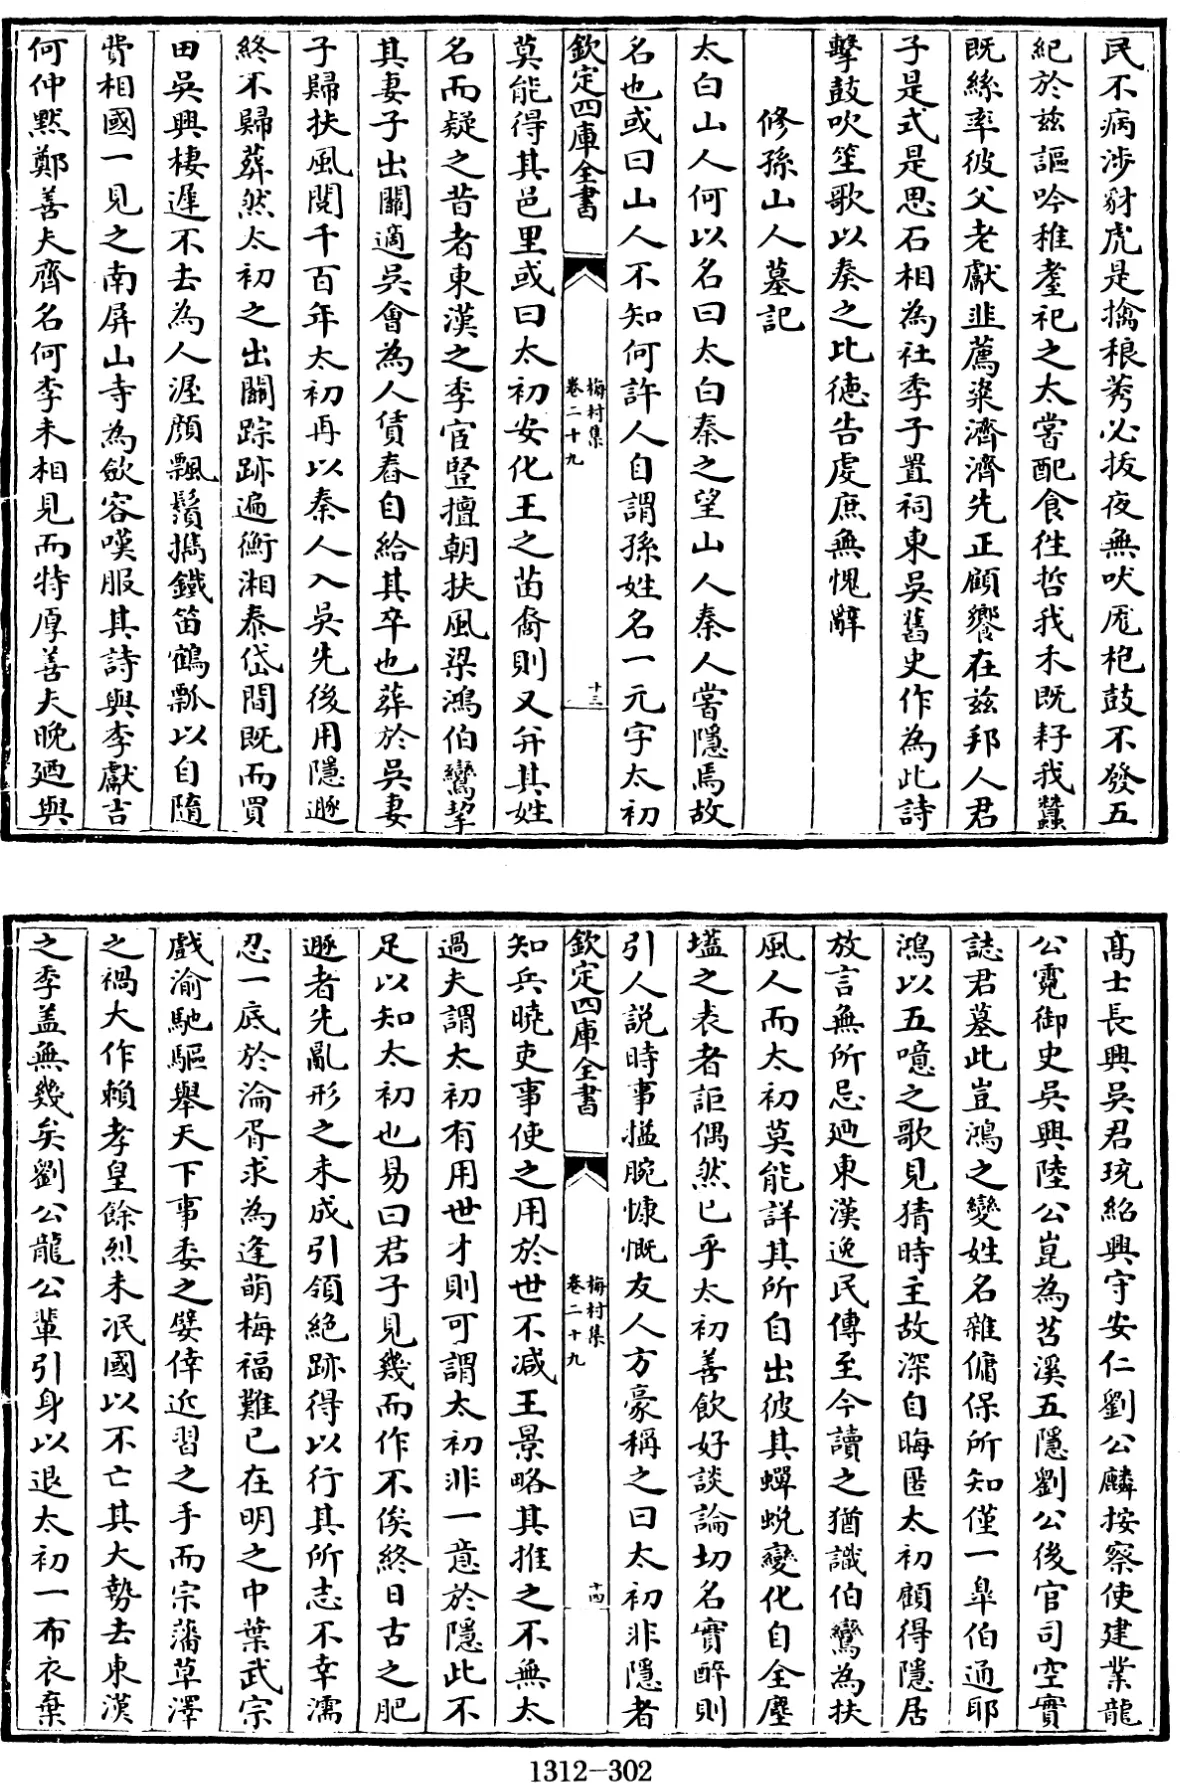 民不病涉豺虎是擒稂莠必拔夜無吠尨枹鼓不發五
紀於兹謳吟稚耋祀之太嘗配食徃哲我禾既耔我蠶
既絲率彼父老獻韭薦粢濟濟先正顧饗在兹邦人君
子是式是思石相為社季子置祠東吳舊史作為此詩
擊鼓吹笙歌以奏之比德告虔庶無愧辭
修孫山人墓記
太白山人何以名曰太白秦之望山人秦人嘗隱焉故
名也或曰山人不知何許人自謂孫姓名一元字太初
欽定四庫全書
梅村集
卷二十九
十三
莫能得其邑里或曰太初安化王之苗裔則又并其姓
名而疑之昔者東漢之季宦豎擅朝扶風梁鴻伯鸞挈
其妻子出關適吳會為人賃舂自給其卒也葬於吳妻
子歸扶風閱千百年太初再以秦人入吳先後用隱遯
終不歸葬然太初之出關踪跡遍衡湘泰岱間既而買
田吳興棲遲不去為人渥顏飄鬚攜鐵笛鶴瓢以自隨
費相國一見之南屏山寺為斂容嘆服其詩與李獻吉
何仲黙鄭善夫齊名何李未相見而特厚善夫晩廼與
髙士長興吳君珫紹興守安仁劉公麟按察使建業龍
公霓御史吳興陸公崑為苕溪五隱劉公後官司空實
誌君墓此豈鴻之變姓名雜傭保所知僅一臯伯通耶
鴻以五噫之歌見猜時主故深自晦匿太初顧得隱居
放言無所忌廼東漢逸民傳至今讀之猶識伯鸞為扶
風人而太初莫能詳其所自出彼其蟬蛻變化自全塵
壒之表者詎偶然已乎太初善飲好談論切名實醉則
引人說時事搤腕慷慨友人方豪稱之曰太初非隱者
欽定四庫全書
梅村集
卷二十九
十四
知兵曉吏事使之用於世不減王景略其推之不無太
過夫謂太初有用世才則可謂太初非一意於隱此不
足以知太初也易曰君子見幾而作不俟終日古之肥
遯者先亂形之未成引領絶跡得以行其所志不幸濡
忍一底於淪胥求為逢萌梅福難已在明之中葉武宗
戲渝馳驅舉天下事委之嬖倖近習之手而宗藩草澤
之禍大作賴孝皇餘烈未冺國以不亡其大勢去東漢
之季盖無幾矣劉公龍公軰引身以退太初一布衣棄
1312-302